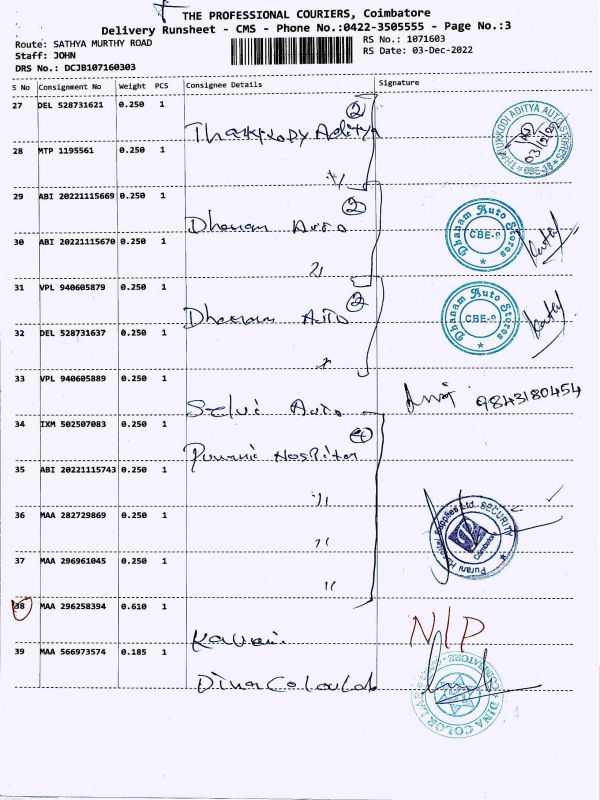 THE PROFESSIONAL COURIERS, Coimbatore
Delivery Runsheet - CMS - Phone No.:0422-3505555 - Page No.:3
Route: SATHYA MURTHY ROAD
RS No.: 1071603
Staff: JOHN
RS Date: 03-Dec-2022
DRS No.: DCJB107160303
S No Consignment No Weight PCS Consignee Details Signature
27 DEL 528731621 0.250 1 2
Aditya
28 MTP 1195561 0.250 1
29 ABI 20221115669 0.250 1 2
Dhanam Auto
Dhanam Auto Stores CBE-9
30 ABI 20221115670 0.250 1
31 VPL 940605879 0.250 1 2
Dhanam Auto
Dhanam Auto Stores CBE-9
32 DEL 528731637 0.250 1
33 VPL 940605889 0.250 1
Selvi Auto
9843180454
34 IXM 502507083 0.250 1 4
Purani Hospital
35 ABI 20221115743 0.250 1
"
36 MAA 282729869 0.250 1
"
Purani Hospital Supplies Ltd. SECURITY Coimbatore
37 MAA 296961045 0.250 1
"
38 MAA 296258394 0.610 1
N/P
39 MAA 566973574 0.185 1
Dina Colou Lab
DINA COLOR LAB